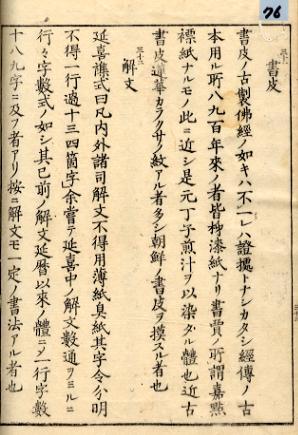 76
三十六
書皮
書皮ノ古製佛經ノ如キハ不一レハ證據トナシカタシ經傳ノ古
本用ル所八九百年來ノ者皆柹漆紙ナリ書賈ノ所謂嘉㸃
褾紙ナルモノ此ニ近シ是元丁子煎汁ヲ以染タル體也近古
書皮蓮華カラクサノ紋アル者多シ朝鮮ノ書皮ヲ摸スル者也
三十七
解文
延喜雜式曰凡内外諸司解文不得用薄紙臭紙其字令分明
不得一行過十三四箇字余嘗テ延喜中ノ解文數通ヲミルニ
行々字數式ノ如シ其已前ノ解文延暦以來ノ體ニメ一行字數
十八九字ニ及フ者アリ按ニ解文モ一定ノ書法アル者也